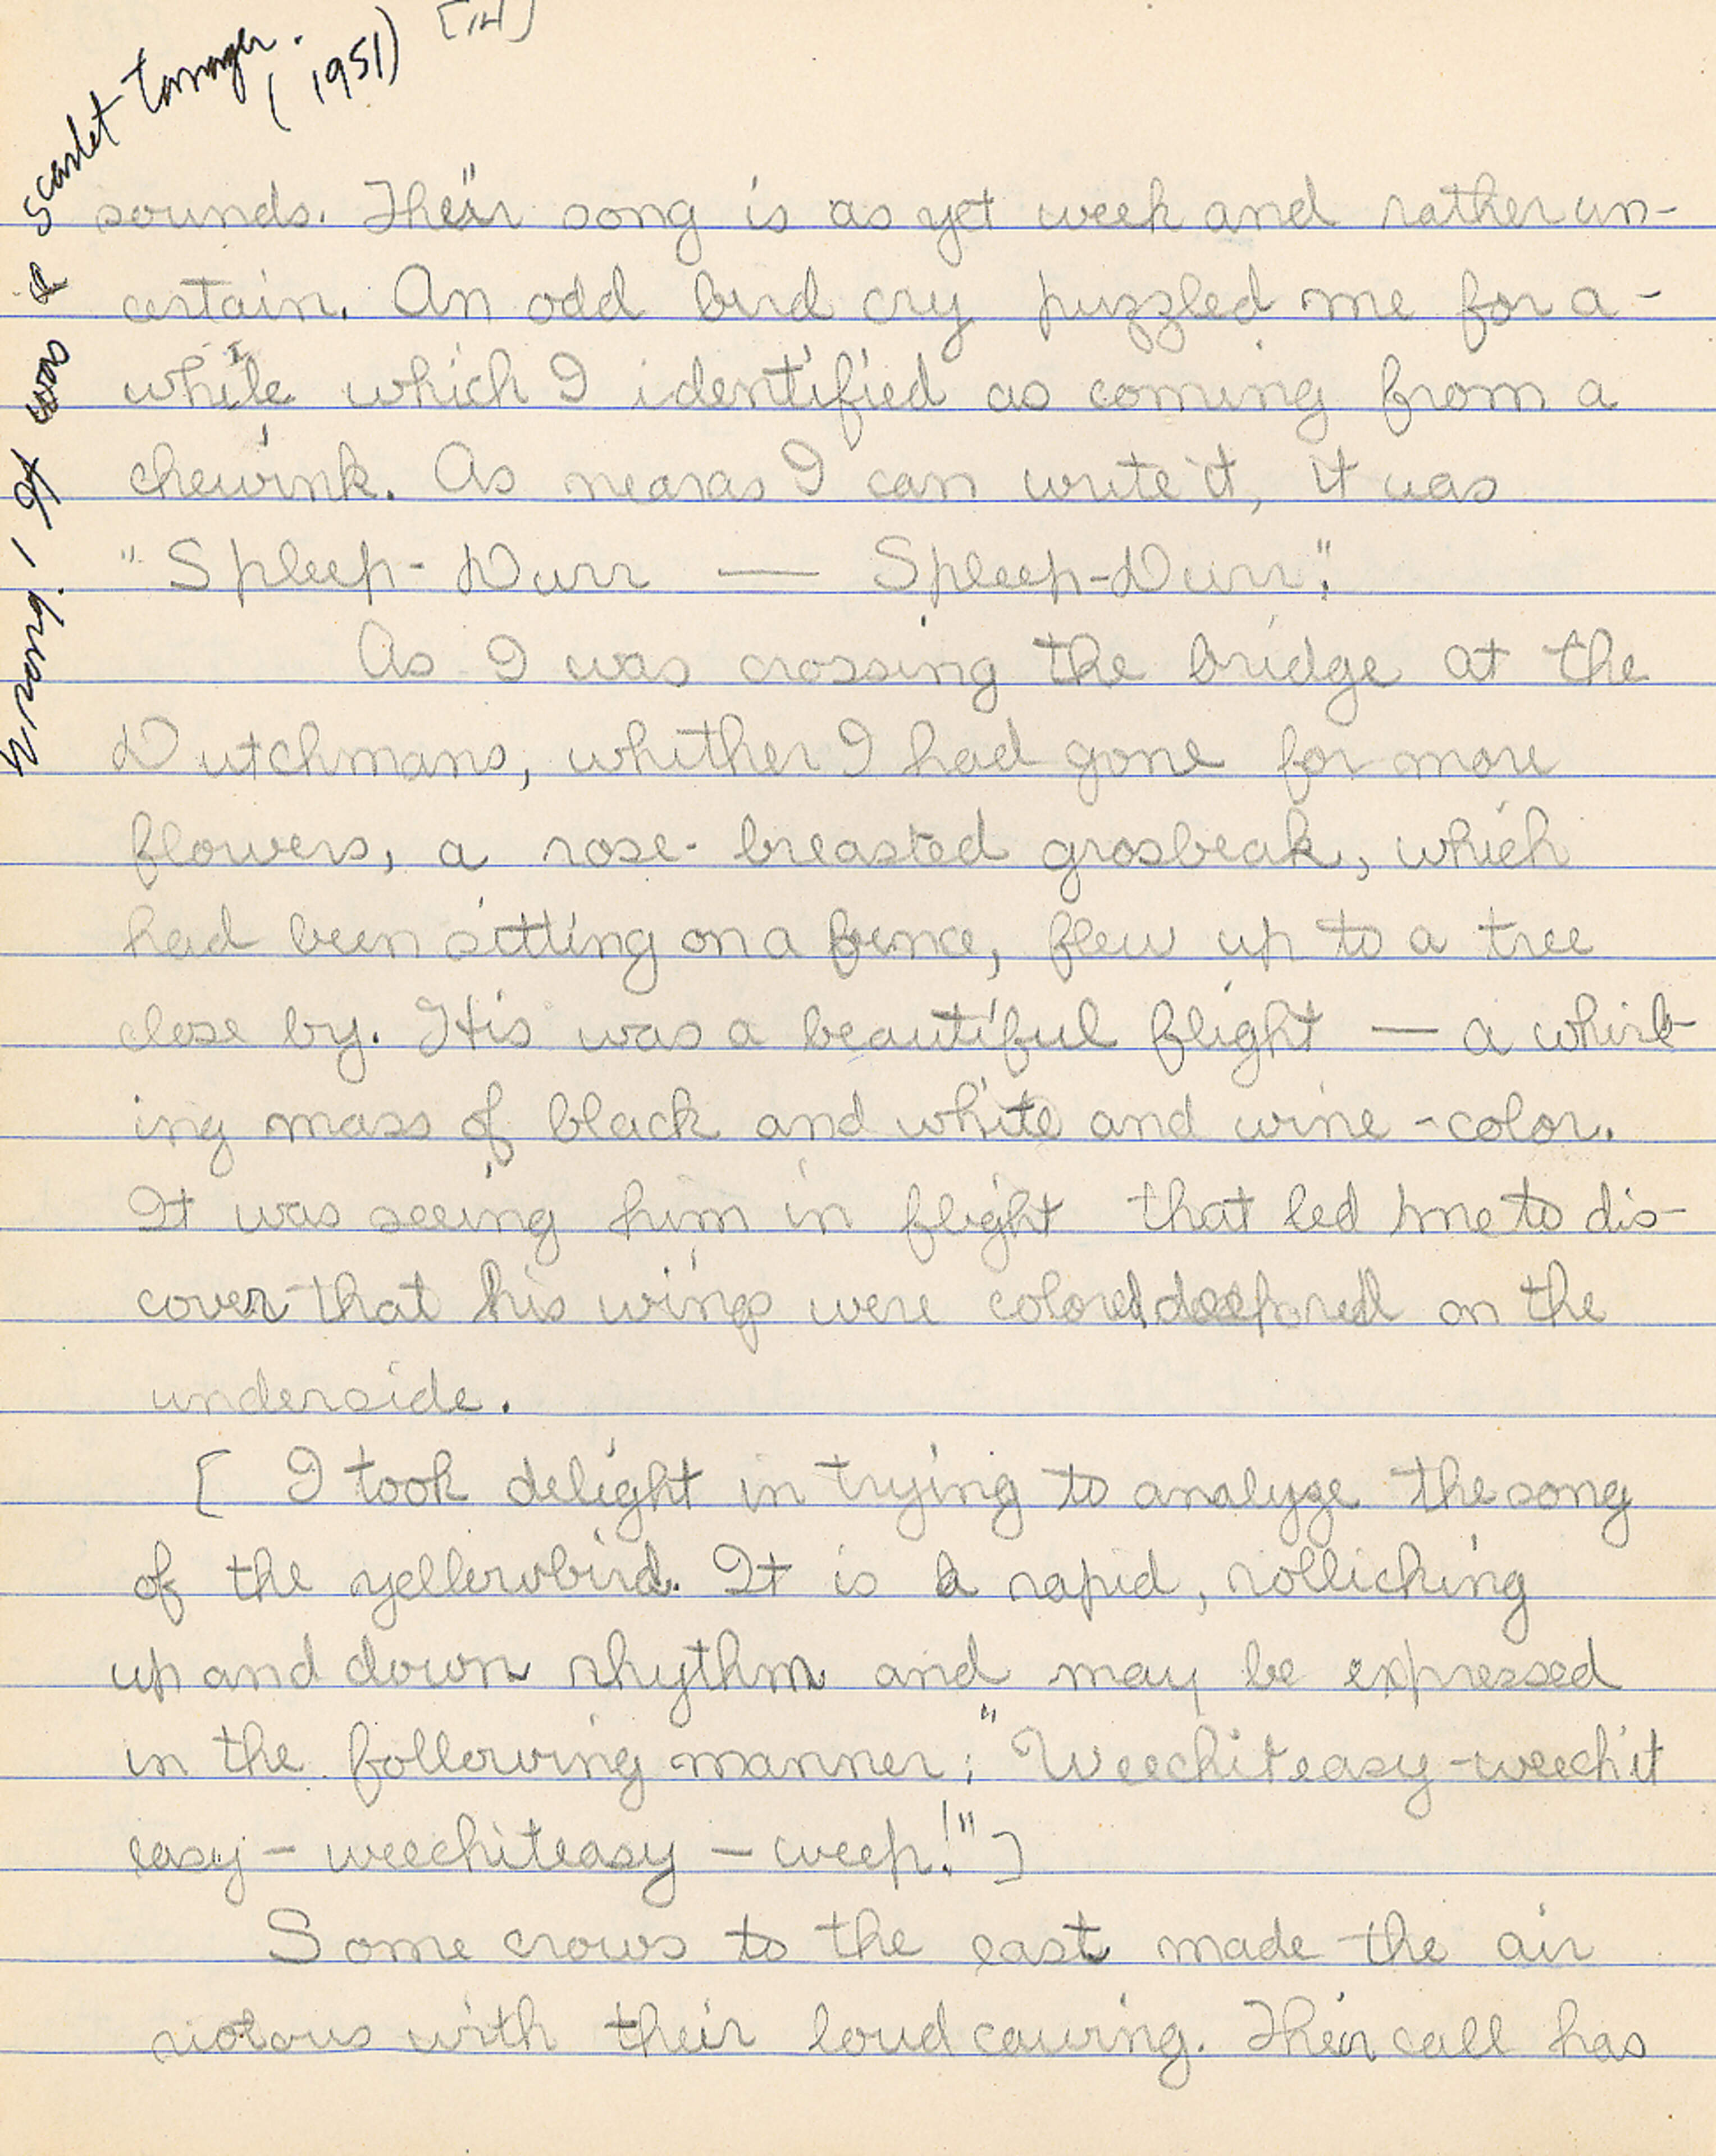 [14]
Wrong, it was a scarlet tanager.
(1951)
sounds. Their song is as yet week and rather un-
certain. An odd bird cry puzzled me for a-
while which I identified as coming from a
chewink. As nearas I can write it, it was
"Spleep-Durr — Spleep-Durr".
As I was crossing the bridge at the
Dutchmans, whither I had gone for more
flowers, a rose-breasted grosbeak, which
had been sitting on a fence, flew up to a tree
close by. His was a beautiful flight — a whirl-
ing mass of black and white and wine-color.
It was seeing him in flight that led me to dis-
cover that his wings were colored deep red on the
underside.
[ I took delight in trying to analyze the song
of the yellowbird. It is a rapid, rollicking
up and down rhythm and may be expressed
in the following manner: "Weechiteasy-weechit
easy-weechiteasy-weep!"]
Some crows to the east made the air
riotous with their loud cawing. Their call has